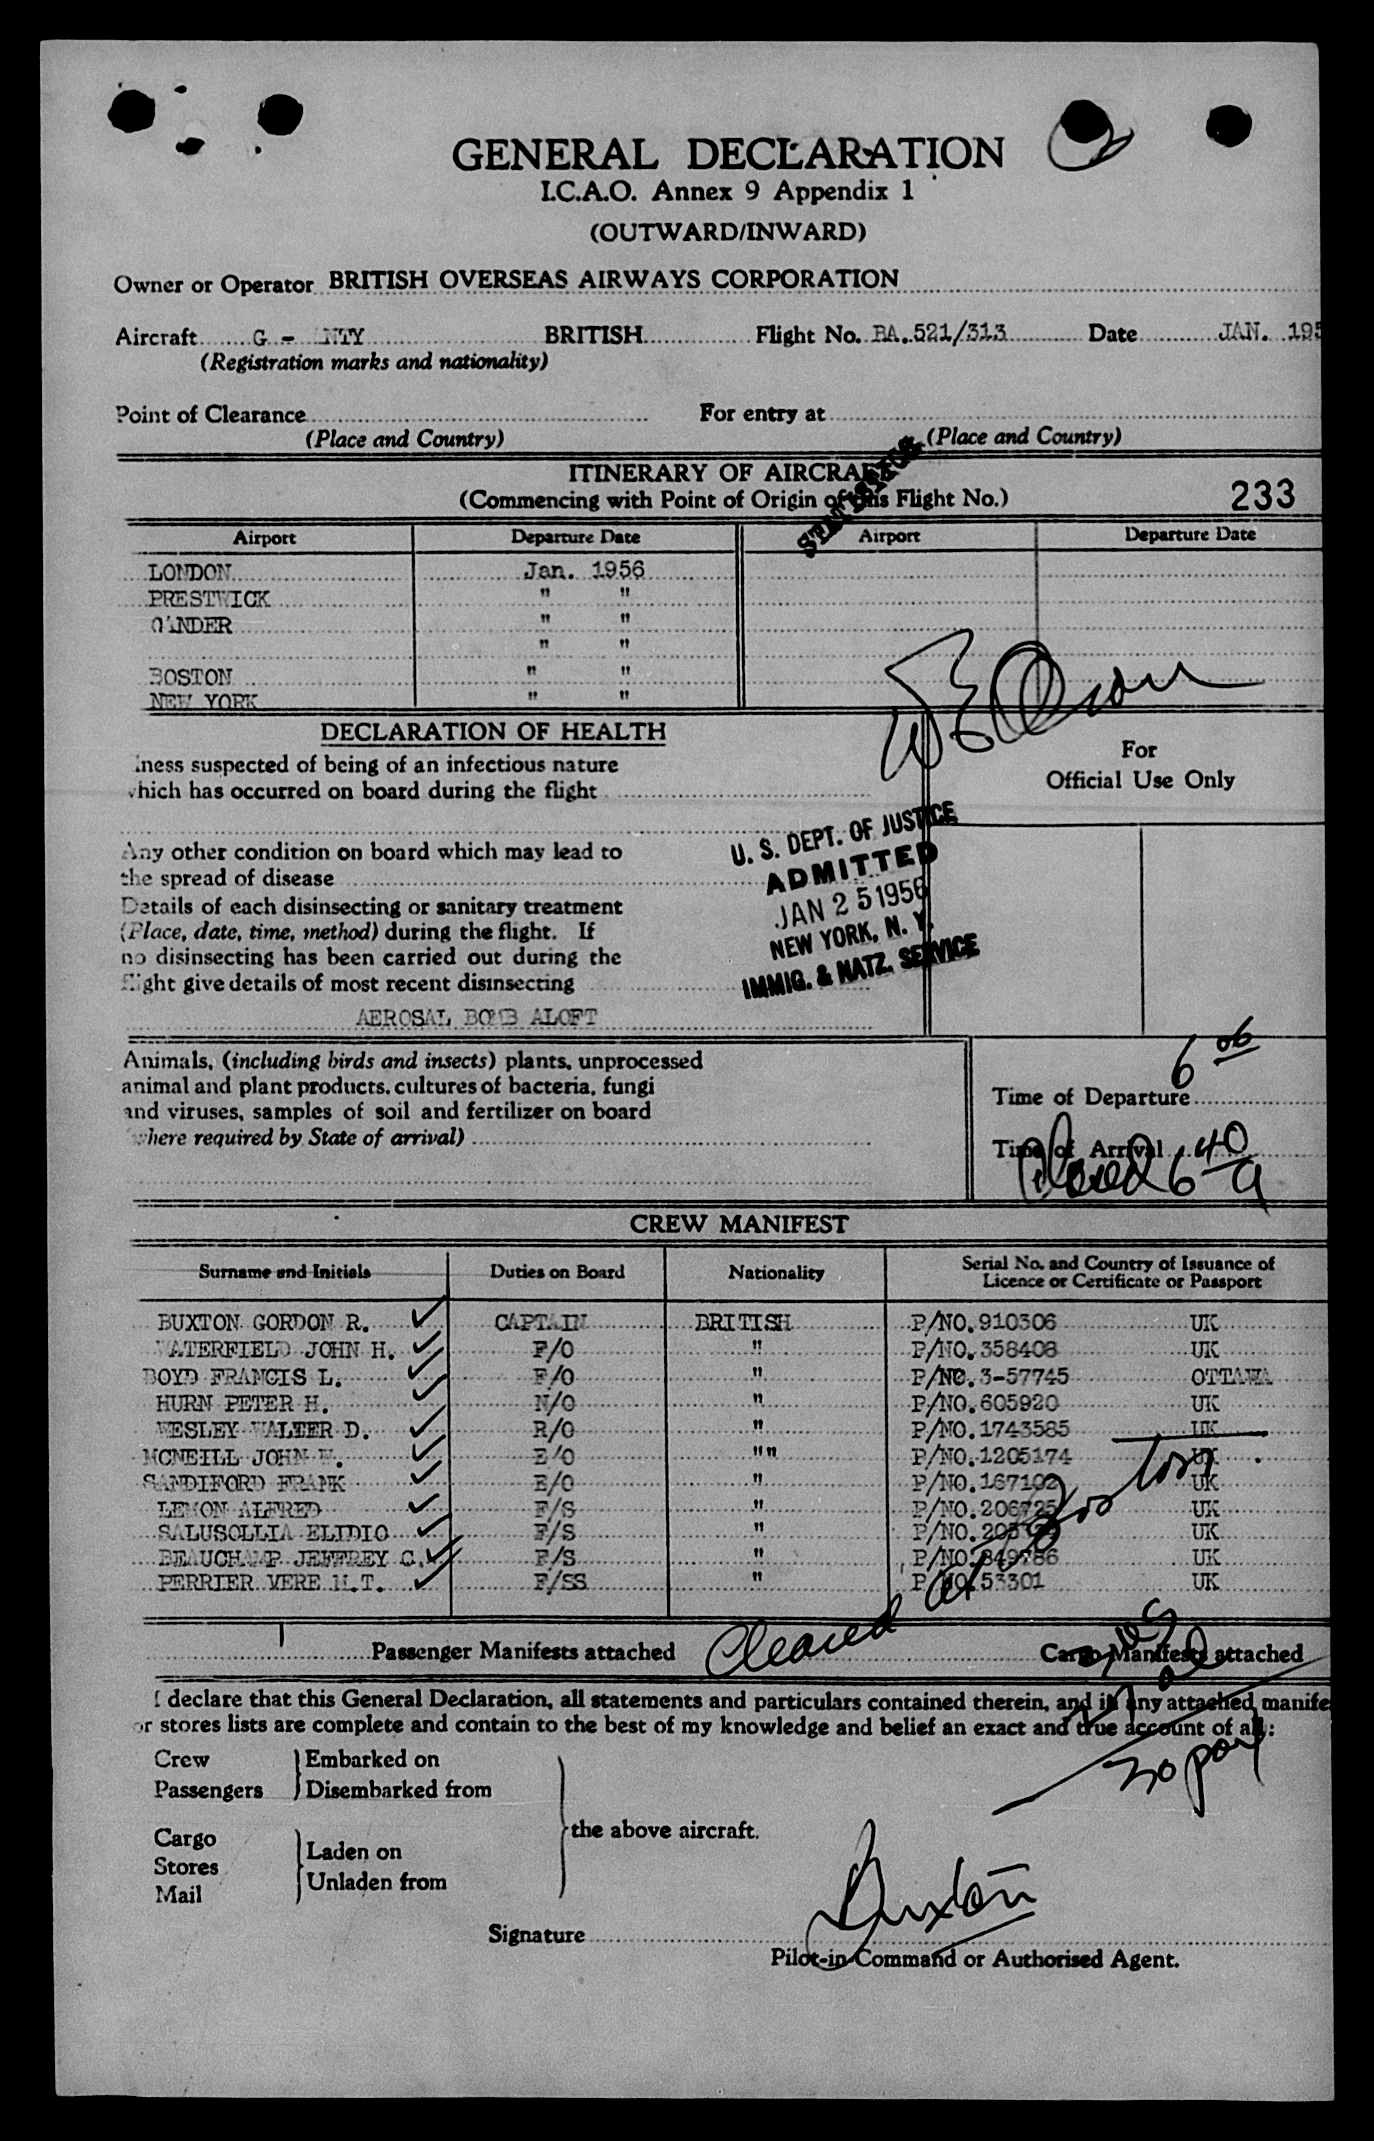 GENERAL DECLARATION
I.C.A.O. Annex 9 Appendix 1
(OUTWARD/INWARD)
Owner or Operator BRITISH OVERSEAS AIRWAYS CORPORATION
Aircraft G - NTY BRITISH Flight No. BA.521/313 Date JAN. 195
(Registration marks and nationality)
Point of Clearance For entry at
(Place and Country) (Place and Country)
STATISTICS
ITINERARY OF AIRCRAFT
(Commencing with Point of Origin of this Flight No.) 233
Airport Departure Date Airport Departure Date
LONDON Jan. 1956
PRESTWICK " "
GANDER " "
" "
BOSTON " "
NEW YORK " "
DECLARATION OF HEALTH
ness suspected of being of an infectious nature
which has occurred on board during the flight
For
Official Use Only
Any other condition on board which may lead to
the spread of disease
Details of each disinsecting or sanitary treatment
(Place, date, time, method) during the flight. If
no disinsecting has been carried out during the
flight give details of most recent disinsecting
AEROSAL BOMB ALOFT
U. S. DEPT. OF JUSTICE
ADMITTED
JAN 25 1956
NEW YORK, N. Y.
IMMIG. & NATZ. SERVICE
Animals, (including birds and insects) plants, unprocessed
animal and plant products, cultures of bacteria, fungi
and viruses, samples of soil and fertilizer on board
where required by State of arrival)
Time of Departure 6 06
Time of Arrival 6 40
CREW MANIFEST
Surname and Initials Duties on Board Nationality Serial No. and Country of Issuance of
Licence or Certificate or Passport
BUXTON GORDON R. CAPTAIN BRITISH P/NO.910306 UK
WATERFIELD JOHN H. F/O " P/NO.358408 UK
BOYD FRANCIS L. F/O " P/NO.3-57745 OTTAWA
HURN PETER H. N/O " P/NO.605920 UK
WESLEY WALTER D. R/O " P/NO.1743585 UK
MCNEILL JOHN W. E/O "" P/NO.1205174 UK
SANDIFORD FRANK E/O " P/NO.167102 UK
LEMON ALFRED F/S " P/NO.206725 UK
SALUSOLLIA ELIDIO F/S " P/NO. UK
BEAUCHAMP JEFFREY C. F/S " P/NO.849786 UK
PERRIER VERE M.T. F/SS " P/NO.53301 UK
Cleared at Boston
1 Passenger Manifests attached Cargo Manifests attached
I declare that this General Declaration, all statements and particulars contained therein, and in any attached manife
or stores lists are complete and contain to the best of my knowledge and belief an exact and true account of all:
30 pax
Crew Embarked on
Passengers Disembarked from
the above aircraft.
Cargo
Stores Laden on
Mail Unladen from
Signature Buxton
Pilot-in-Command or Authorised Agent.